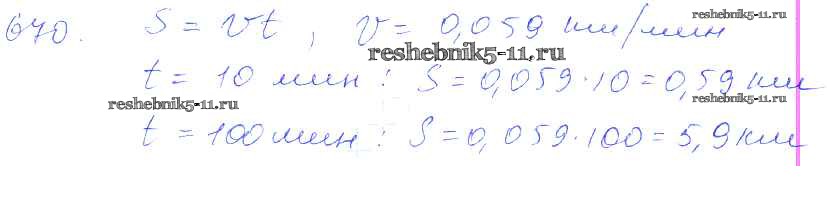 670. S = vt, v = 0,059 км/мин
t = 10 мин: S = 0,059·10 = 0,59 км
t = 100 мин: S = 0,059·100 = 5,9 км
reshebnik5-11.ru
reshebnik5-11.ru
reshebnik5-11.ru
reshebnik5-11.ru